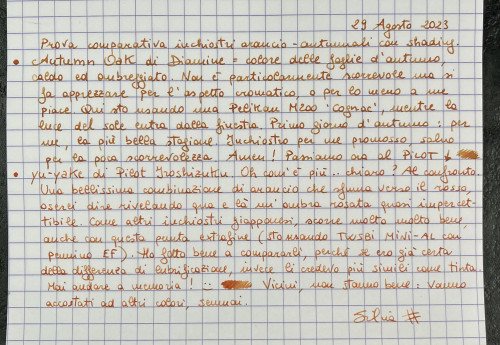 29 Agosto 2023
Prova comparativa inchiostri arancio-autunnali con shading.
• Autumn Oak di Diamine = colore delle foglie d'autunno,
caldo ed ombreggiato. Non è particolarmente scorrevole ma si
fa apprezzare per l'aspetto cromatico, o per lo meno a me
piace. Qui sto usando una Pelikan M200 'Cognac', mentre la
luce del sole entra dalla finestra. Primo giorno d'autunno: per
me, la più bella stagione. Inchiostro per me promosso salvo
per la poca scorrevolezza. Amen! Passiamo ora al Pilot ↓
• yu-yake di Pilot Iroshizuku. Oh com'è più... chiaro? Al confronto.
Una bellissima combinazione di arancio che sfuma verso il rosso,
oserei dire rivelando qua e là un'ombra rosata quasi impercet-
tibile. Come altri inchiostri giapponesi, scorre molto molto bene,
anche con questa punta extrafine (sto usando TWSBI MINI-AL con
pennino EF). Ho fatto bene a compararli, perché se ero già certa
della differenza di lubrificazione, invece li credevo più simili come tinta.
Mai andare a memoria! Vicini, non stanno bene: vanno
accostati ad altri colori, semmai.
Silvia